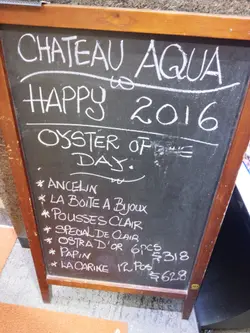 CHATEAU AQUA
HAPPY 2016
OYSTER OF THE
DAY.
* ANCELIN
* LA BOITE A BIJOUX
* POUSSES CLAIR
* SPECIAL DE CLAIR
* OSTRA D'OR 6PCS
* PAPIN $318
* LA CARINE 12 PCS
$628